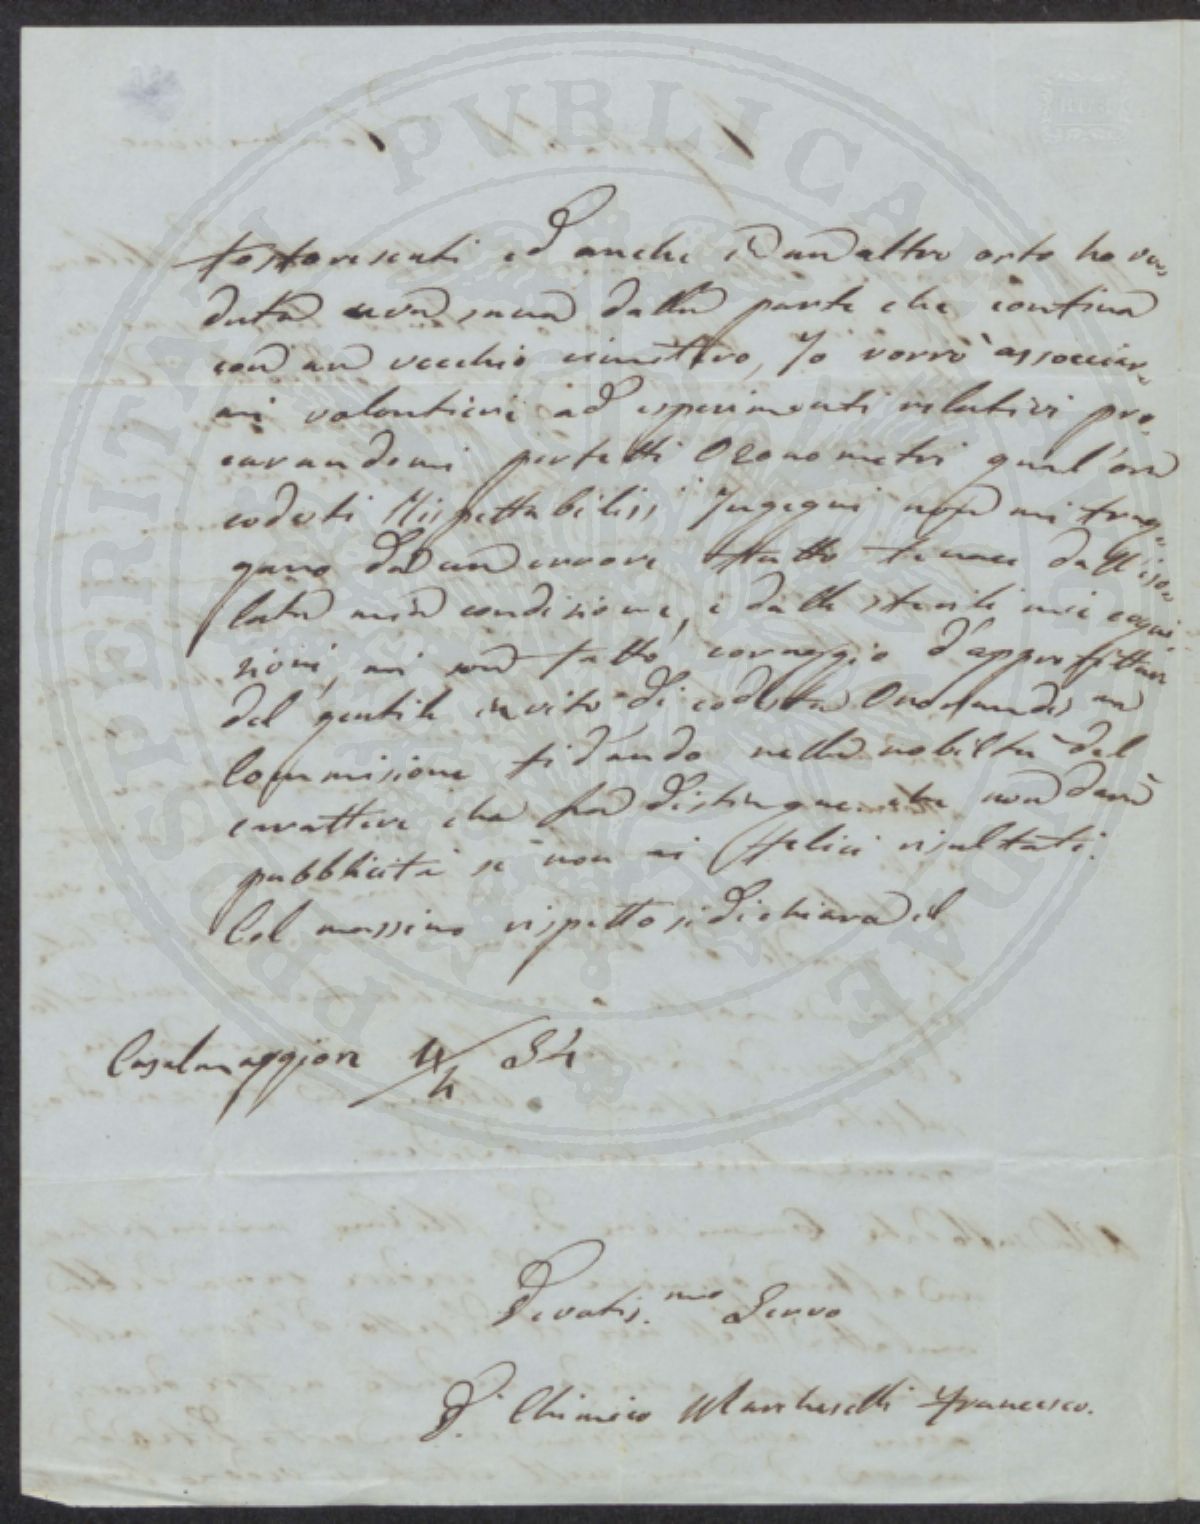 fosforescenti ed anche in un altro orto ho ve=
duta uva sana dalla parte che confina
con un vecchio cimitero, Io vorrò associar=
mi volontieri ad esperimenti relativi pro=
curandomi perfetti Ozonometri qual'ora
codesti Rispettabiliss.i Ingegni non mi trag=
gano da un errore tutto dall'iso=
lata mia condizione, e dalle sterili mie cogni=
zioni, mi son fatto coraggio d'approfittare
del gentile invito di codesta Onoranda
Commisione fidando nella nobiltà del
carattere che la distingue che non darà
pubblicità se non ai felici risultati.
Col massimo rispetto si dichiara il
Casalmaggiore 4/4 54
Devotis.mo Servo
D. Chimico Marcheselli Francesco.
PROSPERITATI PVBLICAE AVGENDAE